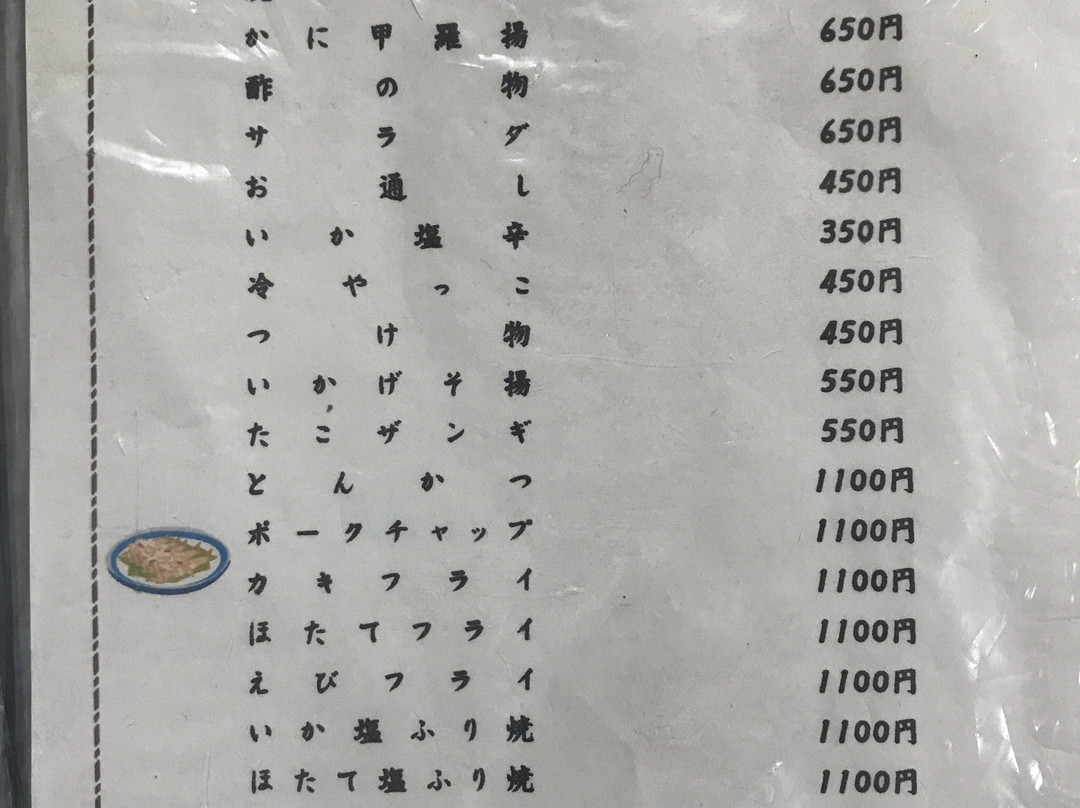 かに甲羅揚 650円
酢の物 650円
サラダ 650円
お通し 450円
いか塩辛 350円
冷やっこ 450円
つけ物 450円
いかげそ揚 550円
たこザンギ 550円
とんかつ 1100円
ポークチャップ 1100円
カキフライ 1100円
ほたてフライ 1100円
えびフライ 1100円
いか塩ふり焼 1100円
ほたて塩ふり焼 1100円